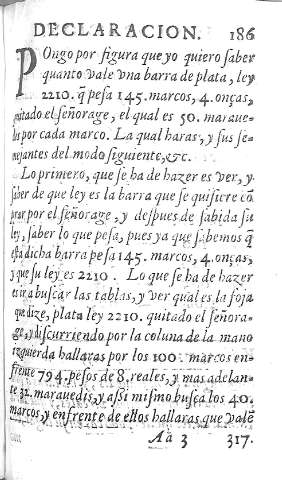 DECLARACION. 186
POngo por figura que yo quiero ſaber
quanto vale vna barra de plata, ley
2210. q̃ peſa 145. marcos, 4. onças,
quitado el ſeñorage, el qual es 50. maraue-
dis por cada marco. La qual haras, y ſus ſe-
mejantes del modo ſiguiente, &c.
Lo primero, que ſe ha de hazer es ver, y
ſaber de que ley es la barra que ſe quiſiere cõ
prar por el ſeñorage, y deſpues de ſabida ſu
ley, ſaber lo que peſa, pues ya que ſabemos q̃
eſta dicha barra peſa 145. marcos, 4. onças,
y que ſu ley es 2210. Lo que ſe ha de hazer
es ir a buſcar las tablas, y ver qual es la foja
que dize, plata ley 2210. quitado el ſeñora-
ge, y diſcurriendo por la coluna de la mano
izquierda hallaras por los 100. marcos en-
frente 794. peſos de 8. reales, y mas adelan-
te 32. marauedis, y aſsi miſmo buſca los 40.
marcos, y enfrente de ellos hallaras que valẽ
Aa 3 317.